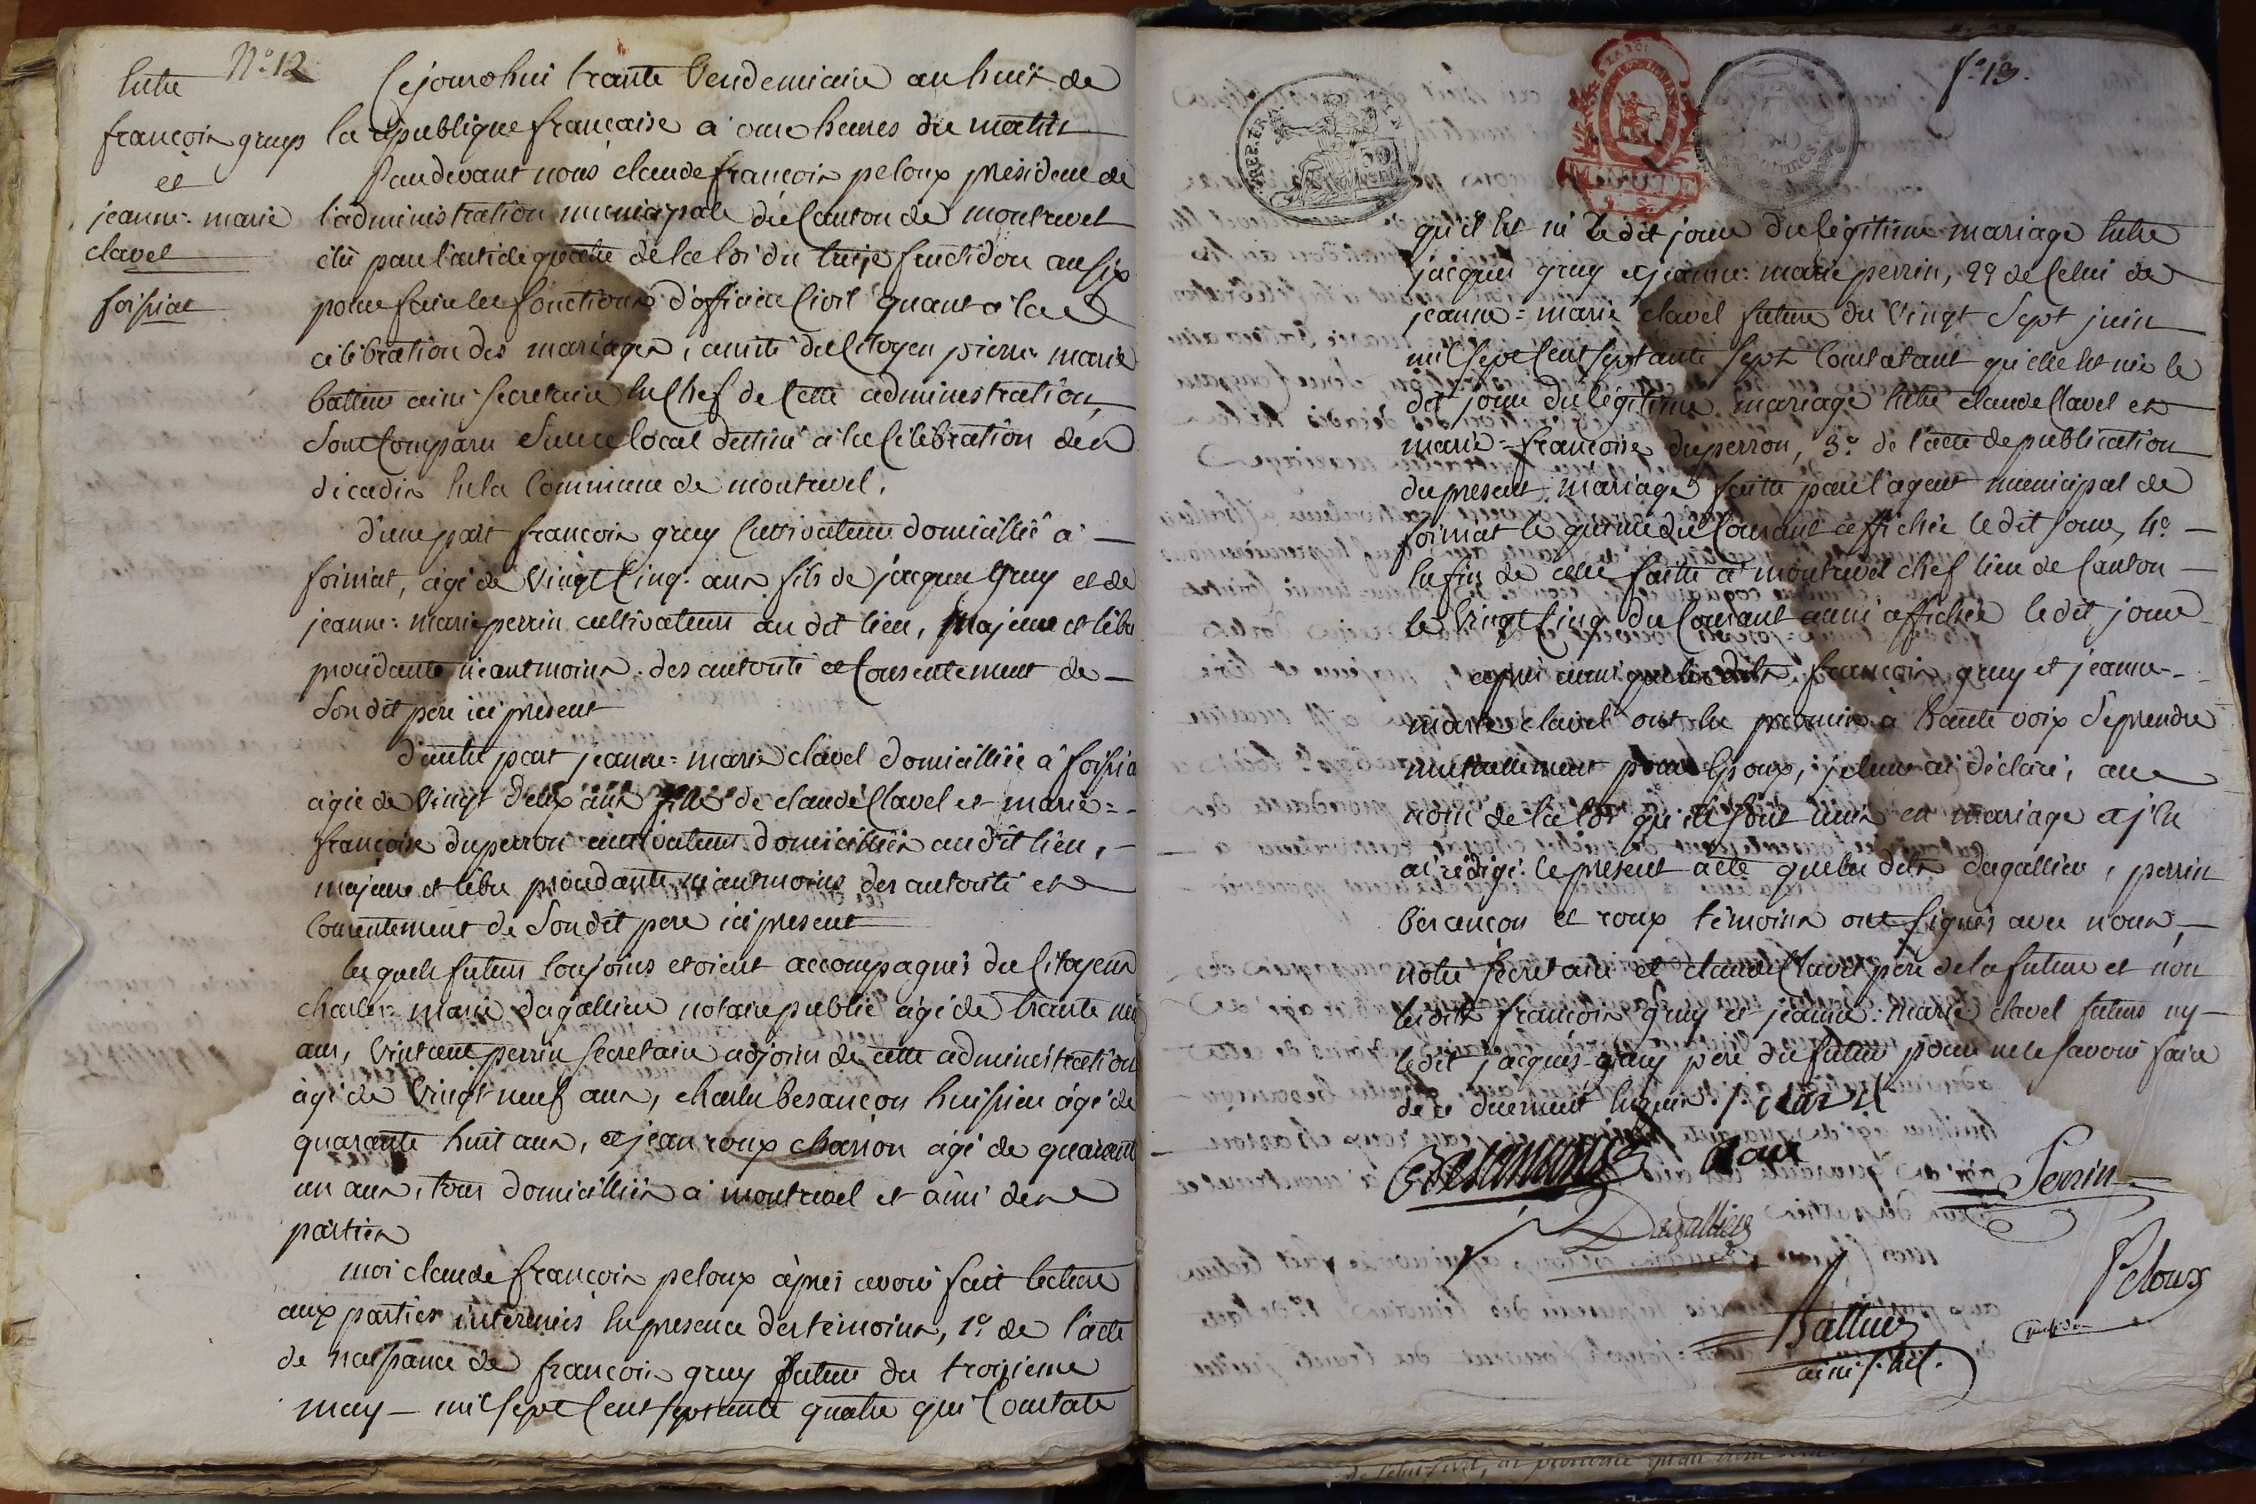 N.° 12
Entre
francois gruy
et
jeanne = marie
clavel
foissiat
Cejourdhui trante Vendemiaire an huit de
la république francaise à onze heures du matin
Pardevant nous claude francois peloux président de
l'administration municipale du Canton de montrevel
élu par l'article quatre de la loi du treize fructidor an six
pour faire les fonctions d'officier Civil quant a la
célébration des mariages, assisté du Citoyen pierre marie
battiur ainé secretaire En Chef de Cette administration,
Sont Comparu dans ce local destiné à la Célébration des
décadis En la Commune de montrevel.
D'une part francois gruy Cultivateur domicillié à
foissiat, agé de Vingt Cinq ans fils de jacques Gruy et de
jeanne = marie perrin cultivateurs au dit lieu, Majeur et libre
procédante néantmoins des autorité et Consentement de
Son dit pere ici présent
D'autre part jeanne = marie clavel domicilliée à foissia
agée de Vingt deux ans fille de claude Clavel et marie =
françoise duperron cultivateurs domicilliés audit lieu,
majeure et libre procédante néantmoins des autorité et
Consentement de Son dit pere ici present
les quels futurs Conjoins etoient accompagnés du Citoyens
charles = marie dagallieu notaire public agé de trante neu
ans, Vincent perrin secretaire adjoins de cette administration
agé de Vingt neuf ans, charles besançon huissieu âgé de
quarante huit ans, et jean roux charron agé de quarante
un ans, tous domicilliés à montrevel et amis des
parties
moi claude francois peloux après avoir fait lecture
aux parties interessés En presence des témoins, 1.° de l'acte
de naissance de francois gruy futur du troisieme
may mil sept Cent septante quatre qui Constate
f.° 13.
qu'il Est né Le dit jour du légitime mariage Entre
jacques gruy et jeanne = marie perrin, 2.° de Celui de
jeanne = marie clavel future du Vingt Sept juin
mil sept Cent septante sept Constatant qu'elle Est née le
dit jour du légitime mariage Entre claude Clavel et
marie = francoise duperron, 3.° de l'acte de publication
du present mariage faitte par l'agent municipal de
foissiat le quinze du Courant affichée le dit jour, 4.°
Enfin de celle faitte à montrevel chef lieu de Canton
le Vingt Cinq du Courant aussi affichée le dit jour
après aussi que les dits francois gruy et jeanne =
marie clavel ont Eu promis à haute voix de prendre
mutuellement pour Epoux, j'ai déclaré, au
nom de la loi qu'ils sont unis en mariage et j'en
ai rédigé le présent acte que les dits dagallieu, perrin
bésançon et roux témoins ont signés avec nous,
notre secretaire et claude Clavel pere de la future et non
lesdits françois gruy et jeanne = marie clavel futurs ny
ledit jacques gruy pere du futur pour ne le savoir faire
de ce duement Enquis. / clavel
Besançon Roux
Perrin
Dagallieu
Peloux
Battiur
ainé s. En ch.